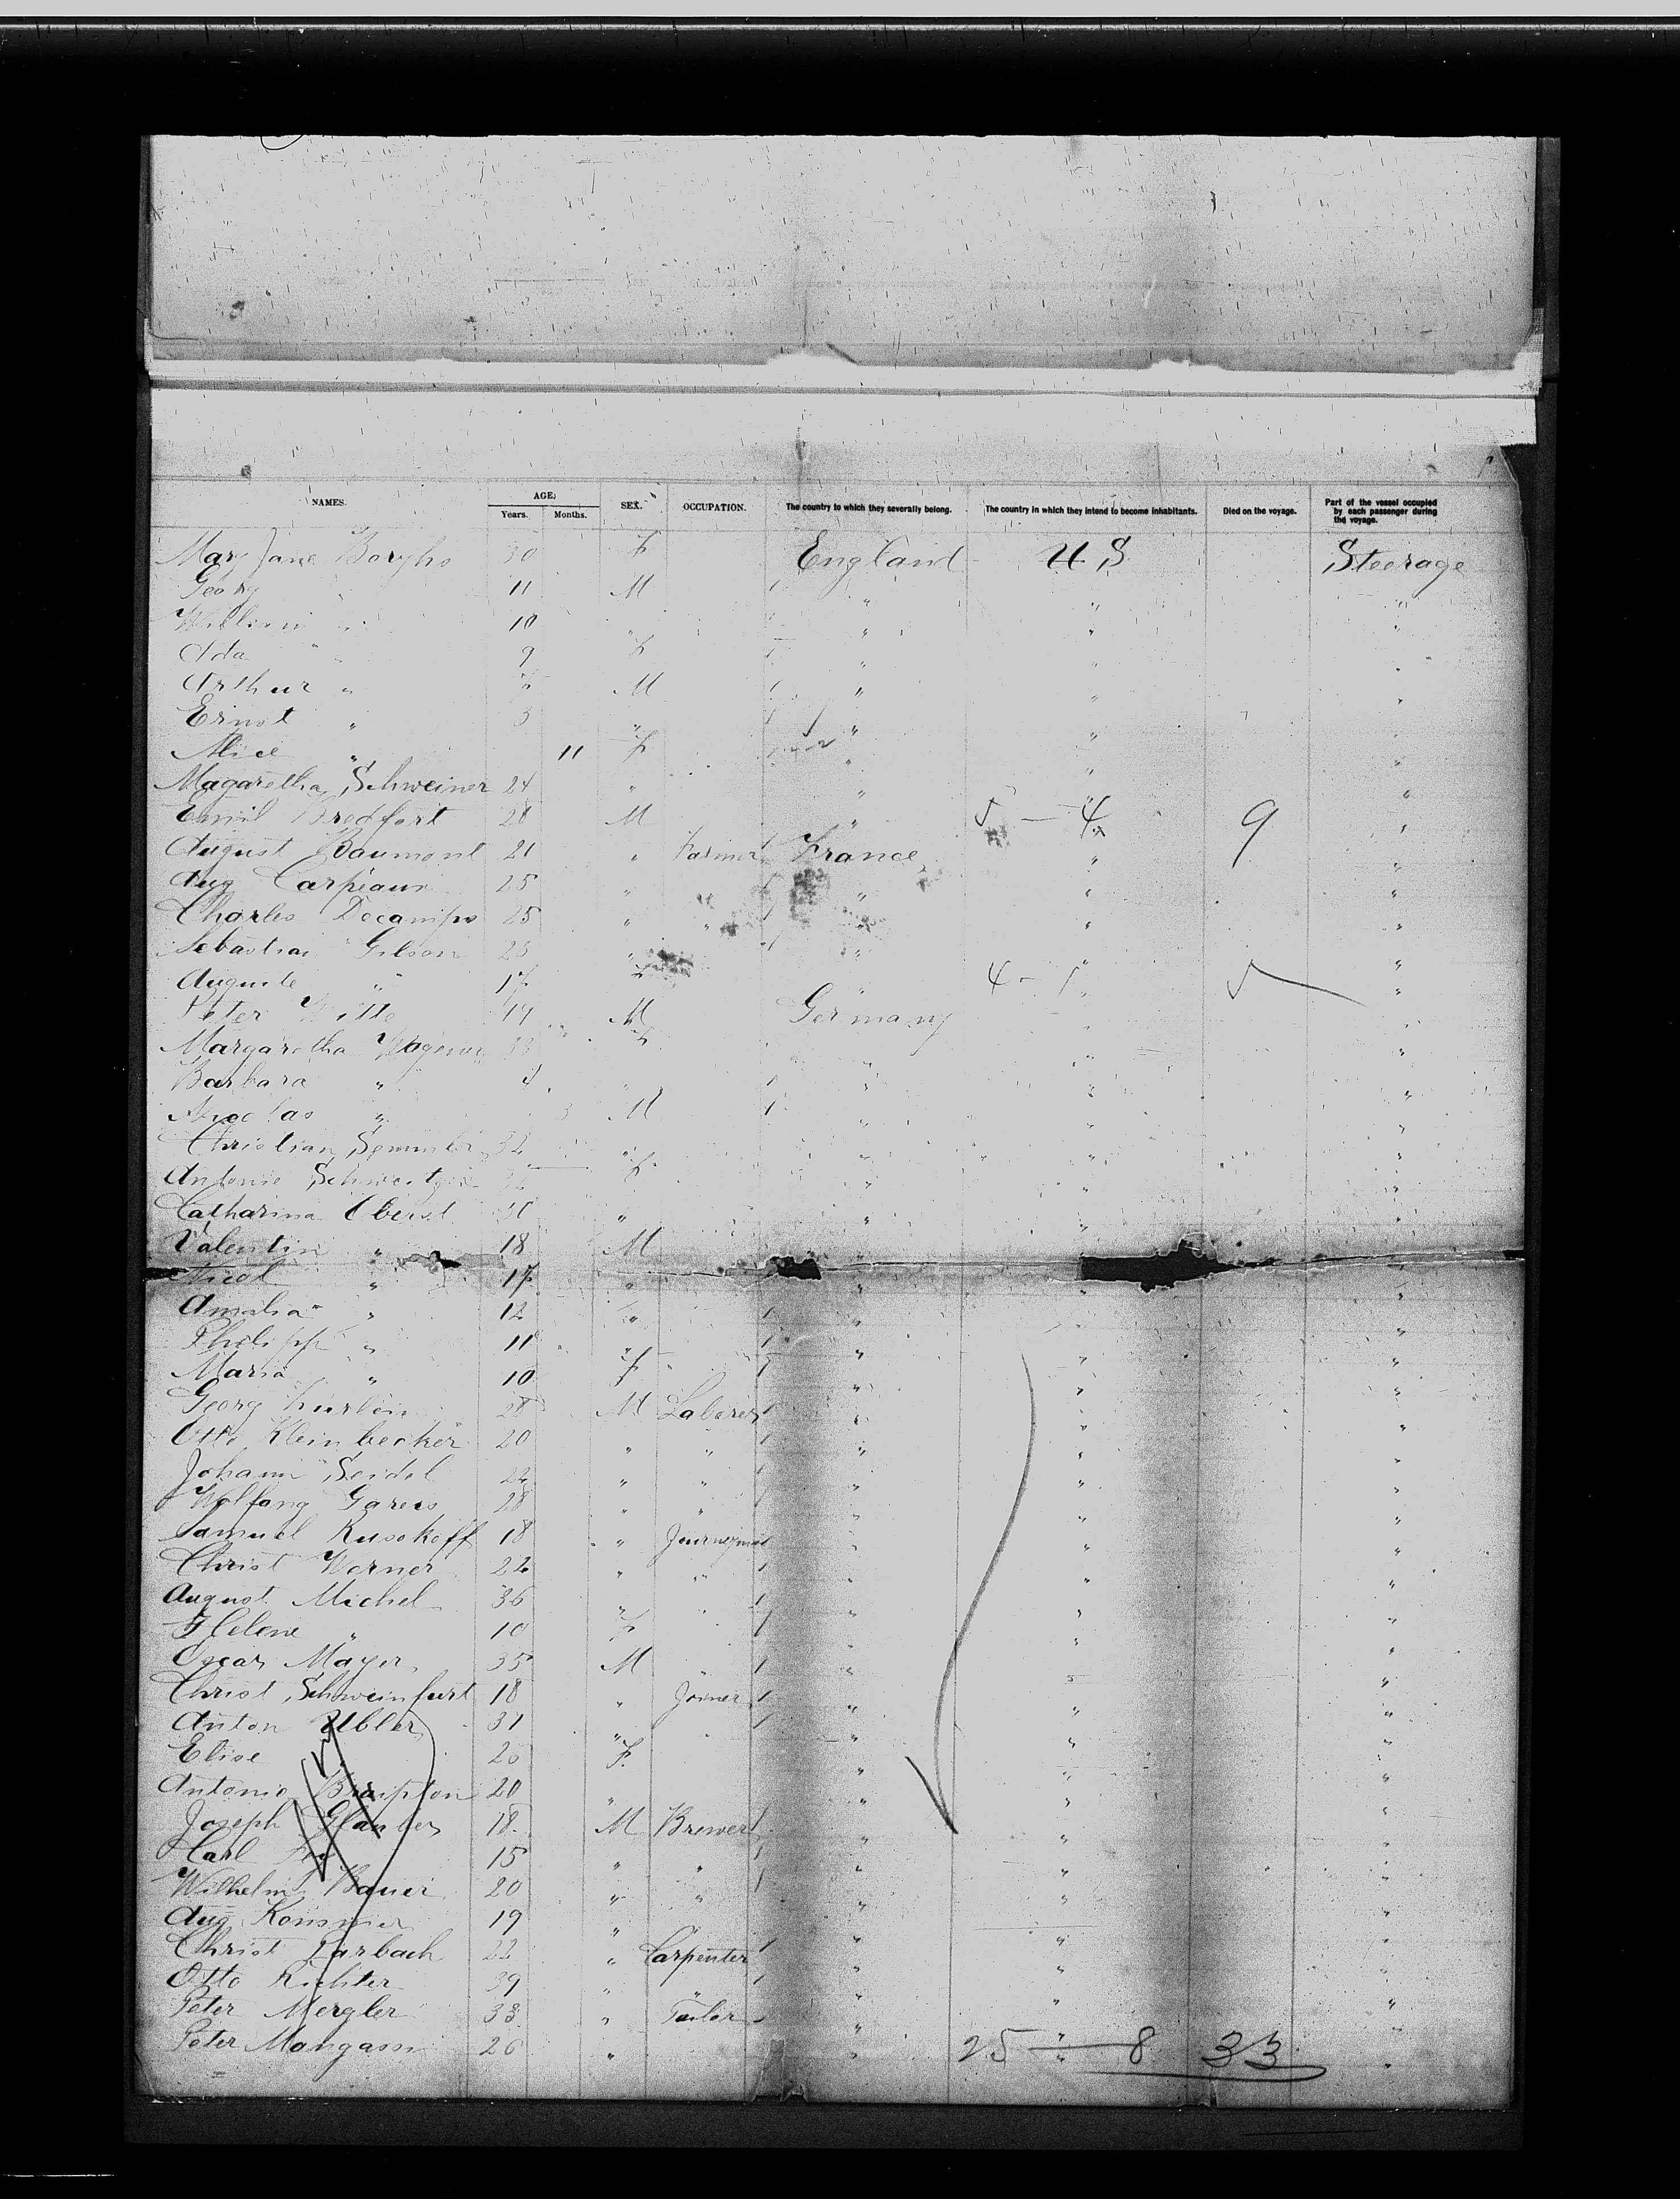 NAMES. AGE. SEX. OCCUPATION. The country to which they severally belong. The country in which they intend to become inhabitants. Died on the voyage. Part of the vessel occupied by each passenger during the voyage.
Years. Months.
Mary Jane 30 F England U S Steerage
Georg 11 M " " "
William " 10 " " " "
Ada " 9 F " " "
Arthur " M " " "
Ernst " 3 " " " "
Alice " 11 F " " "
Magaretha Schweiner 24 " " " "
Emil Bredfort 28 M " 5 — 4 9 "
August Baumont 21 " Farmer France " "
Aug Carpeaux 25 " " " "
Charles Decamps 25 " " " " "
Sebastian Gilson 25 " " " "
Auguste " 17 F " 4 - 1 5 "
Peter Witte 19 M Germany " "
Margaretha Wagener 33 F " " "
Barbara " 4 " " " "
Nicolas " 3 M " " "
Christian 32 " " " "
Antonie F " " "
Catharina Oberst " " " "
Valentin " 18 M " " "
Nicol " 17 " " " "
Amalia " 12 " " " "
Philipp " 11 " " " "
Maria " 10 F " " "
Georg 28 M Laborer " " "
Otto Kleinbecker 20 " " " " "
Johann Seidel 22 " " " " "
Wolfang Gareis 28 " " " " "
Samuel Rusokoff 18 " Journeyman " " "
Christ Werner 22 " " " " "
August Michel 36 " " " " "
Helene " 10 F " " "
Oscar Mayer 35 M " " " "
Christ Schweinfurt 18 " Joiner " " "
Anton Ubler 31 " " " "
Elise 26 F " " "
Antonio 20 " " " "
Joseph Glauber 18 M Brewer " " "
Carl 15 " " " " "
Wilhelm Bauer 20 " " " " "
Aug 19 " " " "
Christ 22 " Carpenter " " "
Otto Richter 39 " " " " "
Peter Mergler 33 " Tailor " " "
Peter Mangasm 26 " " 25 — 8 33 "